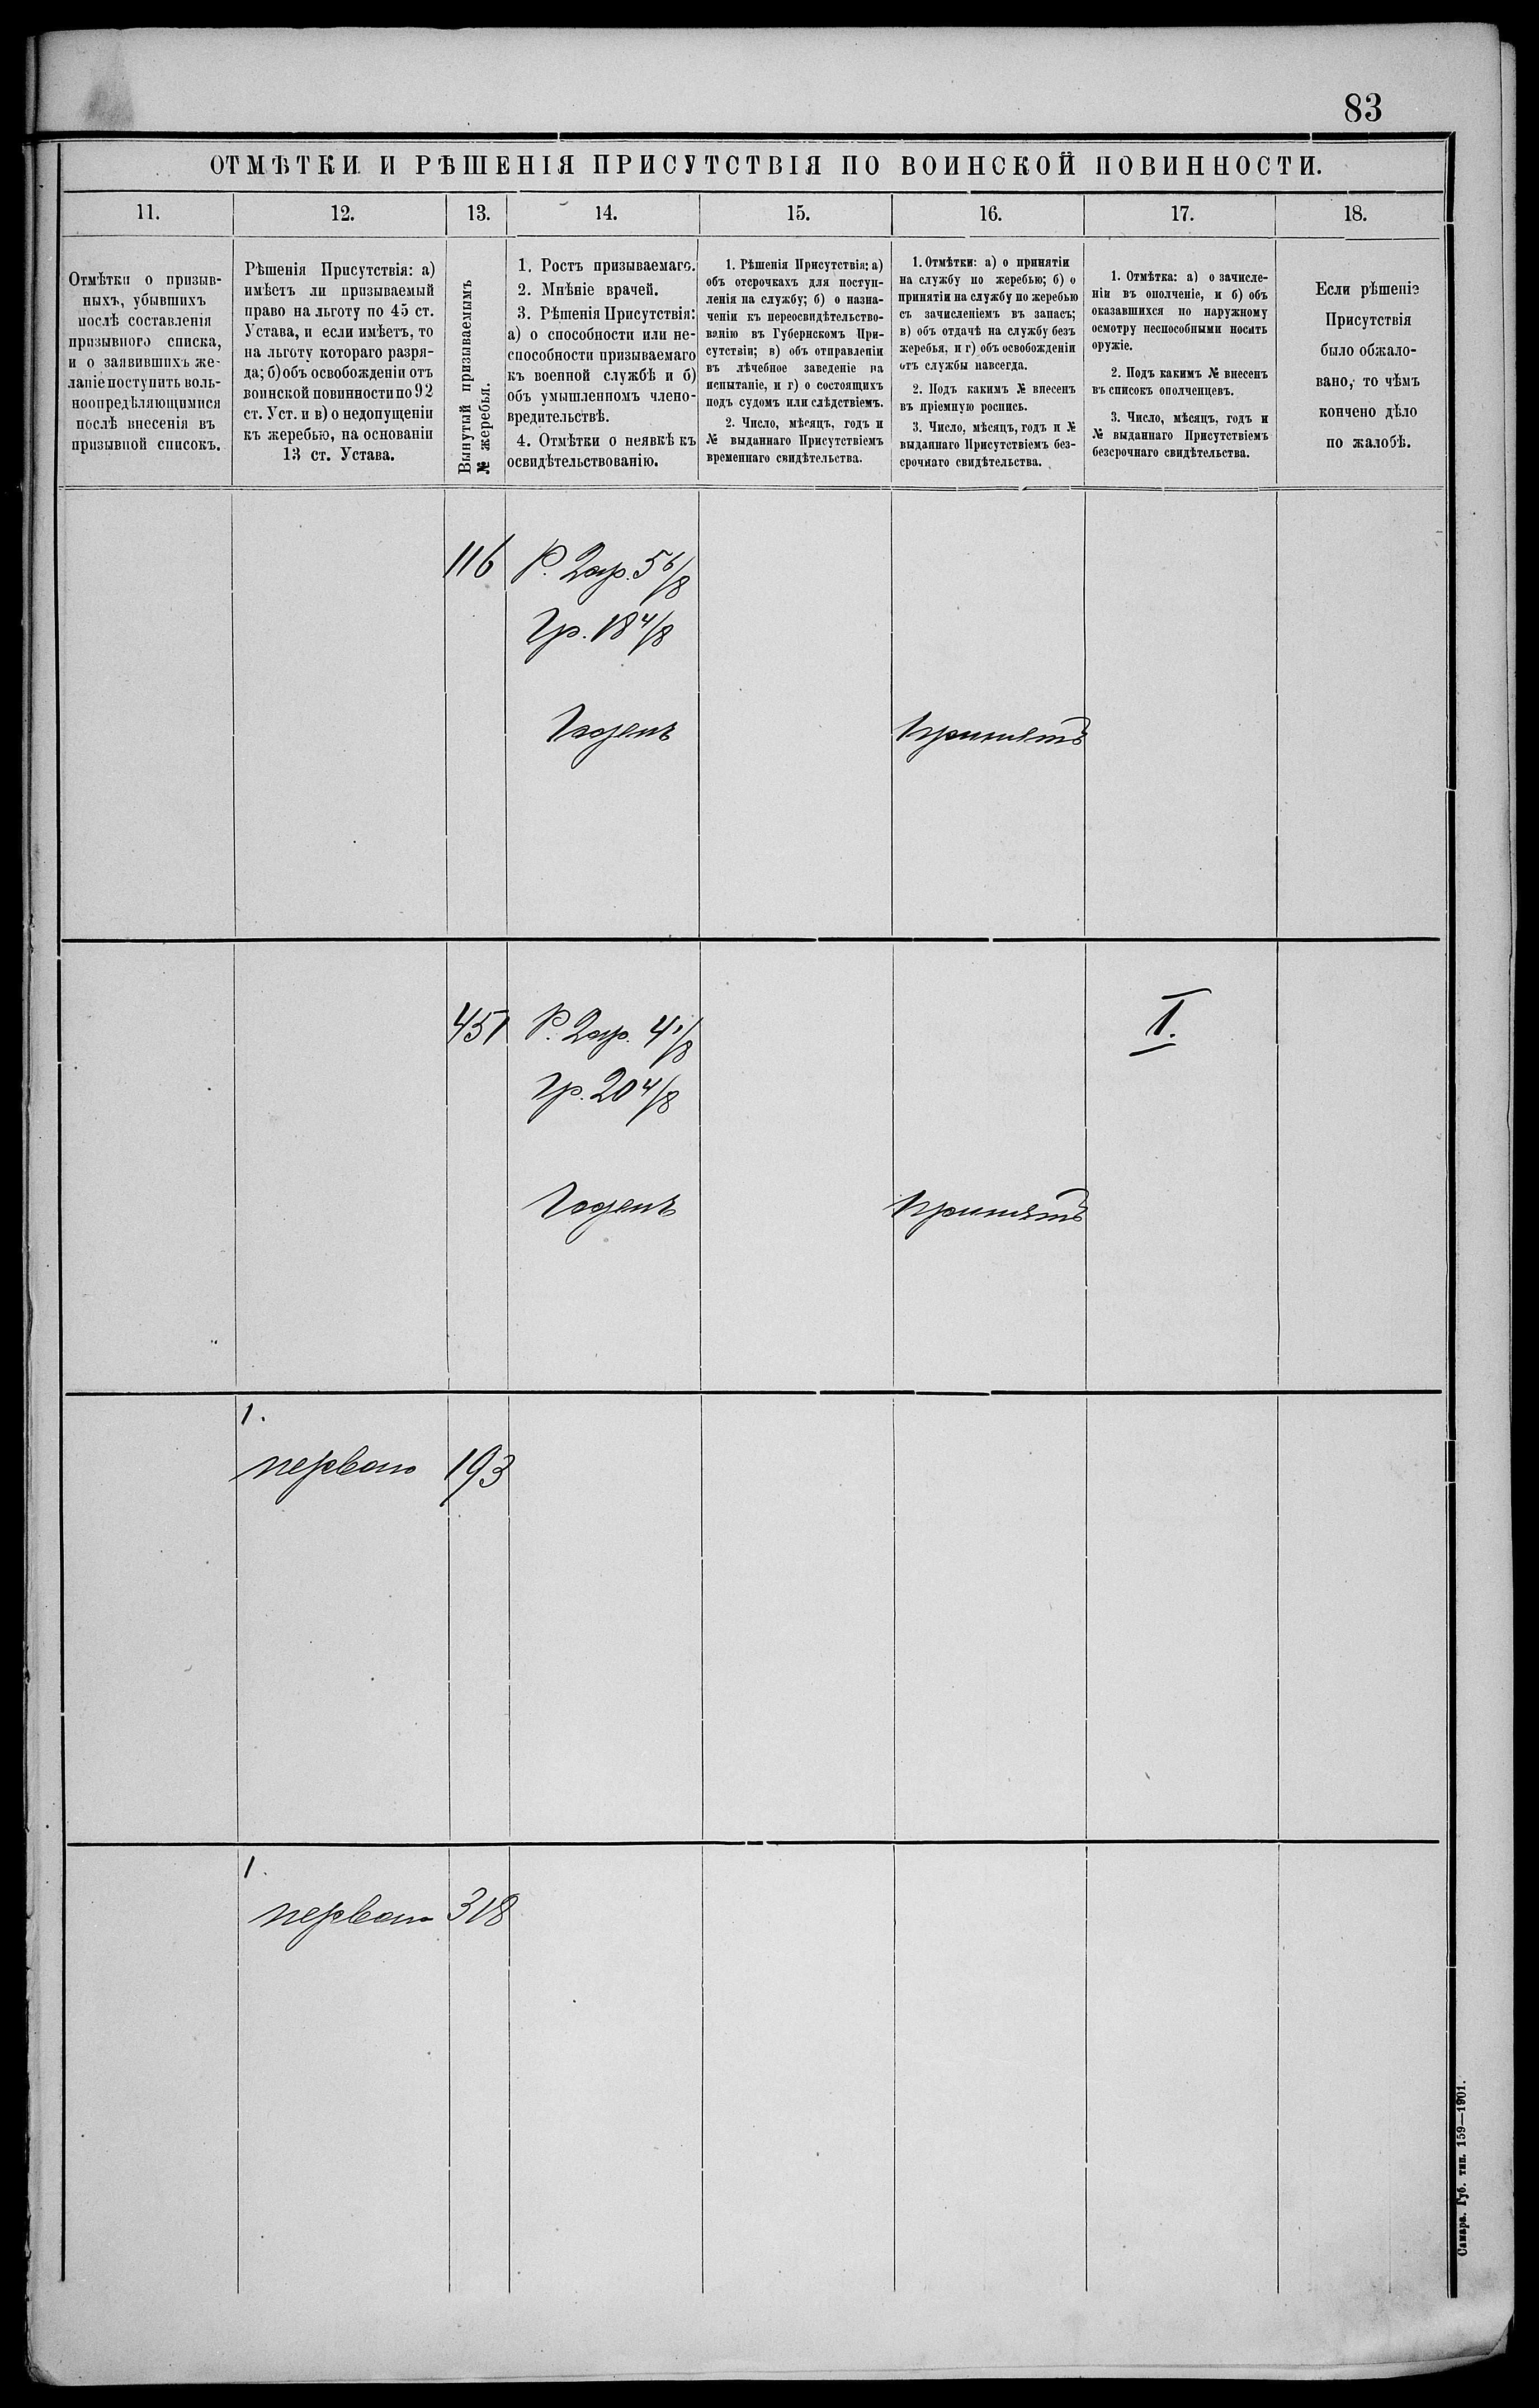 83
ОТМѢТКИ И РѢШЕНІЯ ПРИСУТСТВІЯ ПО ВОИНСКОЙ ПОВИННОСТИ.
11.
12.
13.
14.
15.
16.
17.
18.
Отмѣтки о призыв-
ныхъ, убывшихъ
послѣ составленія
призывного списка,
и о заявившихъ же-
ланіе поступить воль-
ноопредѣляющимися
послѣ внесенія въ
призывной списокъ.
Рѣшенія Присутствія: а)
имѣетъ ли призываемый
право на льготу по 45 ст.
Устава, и если имѣетъ, то
на льготу котораго разря-
да; б) объ освобожденіи отъ
воинской повинности по 92
ст. Уст. и в) о недопущеніи
къ жеребью, на основаніи
13 ст. Устава.
Вынутый призываемымъ
№ жеребья.
1. Ростъ призываемаго.
2. Мнѣніе врачей.
3. Рѣшенія Присутствія:
а) о способности или не-
способности призываемаго
къ военной службѣ и б)
объ умышленномъ члено-
вредительствѣ.
4. Отмѣтки о неявкѣ къ
освидѣтельствованію.
1. Рѣшенія Присутствія: а)
объ отсрочкахъ для поступ-
ленія на службу; б) о назна-
ченіи къ переосвидѣтельство-
ванію въ Губернскомъ При-
сутствіи; в) объ отправленіи
въ лѣчебное заведеніе на
испытаніе, и г) о состоящихъ
подъ судомъ или слѣдствіемъ.
2. Число, мѣсяцъ, годъ и
№ выданнаго Присутствіемъ
временнаго свидѣтельства.
1. Отмѣтки: а) о принятіи
на службу по жеребью; б) о
принятіи на службу по жеребью
съ зачисленіемъ въ запасъ;
в) объ отдачѣ на службу безъ
жеребья, и г) объ освобожденіи
отъ службы навсегда.
2. Подъ какимъ № внесенъ
въ пріемную роспись.
3. Число, мѣсяцъ, годъ и №
выданнаго Присутствіемъ без-
срочнаго свидѣтельства.
1. Отмѣтка: а) о зачисле-
ніи въ ополченіе, и б) объ
оказавшихся по наружному
осмотру неспособными носить
оружіе.
2. Подъ какимъ № внесенъ
въ списокъ ополченцевъ.
3. Число, мѣсяцъ, годъ и
№ выданнаго Присутствіемъ
безсрочнаго свидѣтельства.
Если рѣшеніе
Присутствія
было обжало-
вано, то чѣмъ
кончено дѣло
по жалобѣ.
116
Р. 2 ар. 5 6/8
Гр. 18 4/8
Годенъ
принятъ
451
Р. 2 ар. 4 1/8
I.
Гр. 20 4/8
Годенъ
принятъ
1.
первого 193
1.
первого 318
Самара. Губ. тип. 159—1901.